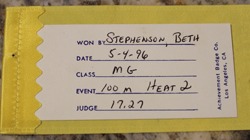 WON BY STEPHENSON, BETH
DATE 5-4-96
CLASS MG
EVENT 100 m HEAT 2
JUDGE 17.27
Achievement Badge Co.
Los Angeles, CA